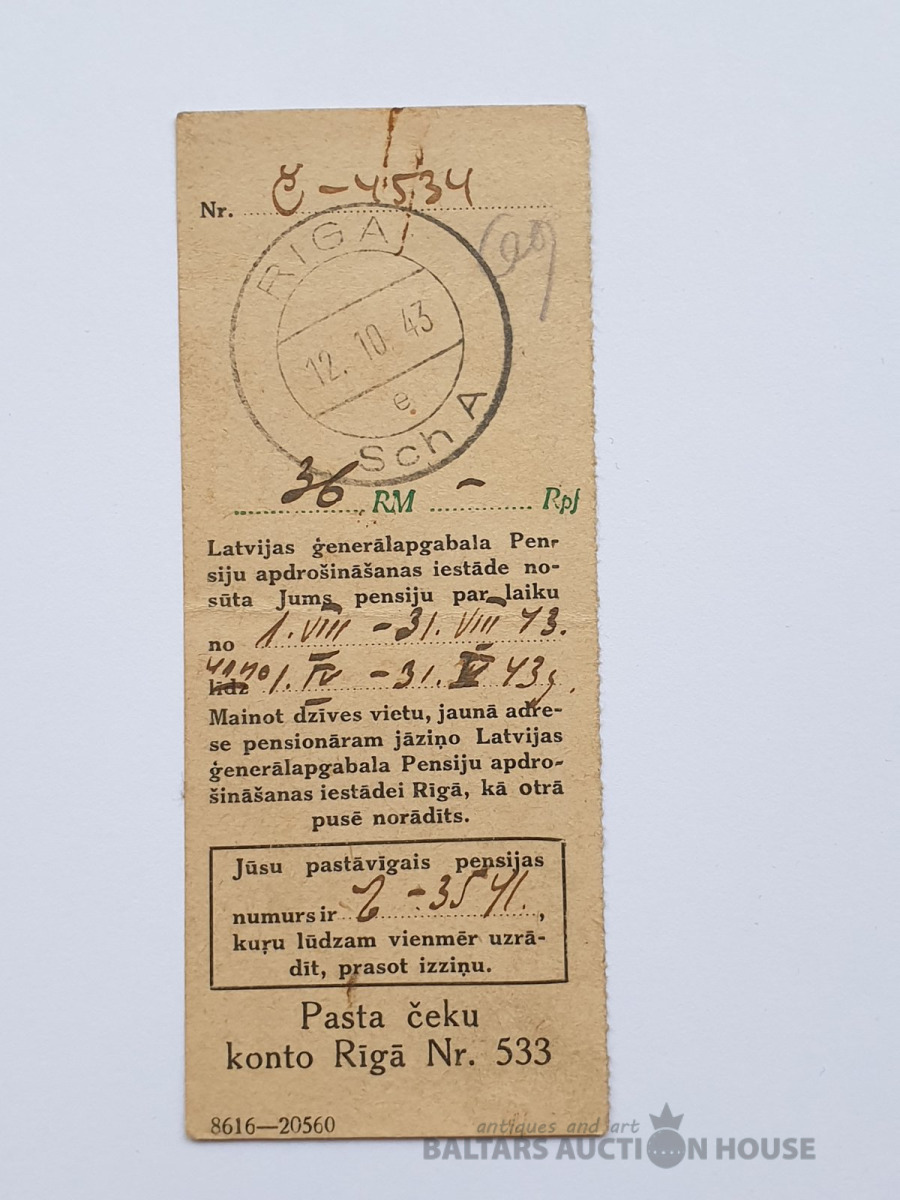 Nr. Č - 4534
RIGA
12. 10. 43
e
Sch A
36 RM - Rpf
Latvijas ģenerālapgabala Pen-
siju apdrošināšanas iestāde no-
sūta Jums pensiju par laiku
no 1. VIII - 31. VIII 43.
līdz 1. IV - 31. V 43 g.
Mainot dzīves vietu, jaunā adre-
se pensionāram jāziņo Latvijas
ģenerālapgabala Pensiju apdro-
šināšanas iestādei Rīgā, kā otrā
pusē norādīts.
Jūsu pastāvīgais pensijas
numurs ir - 3541.,
kuŗu lūdzam vienmēr uzrā-
dīt, prasot izziņu.
Pasta čeku
konto Rīgā Nr. 533
8616—20560
antiques and art
BALTARS AUCTION HOUSE